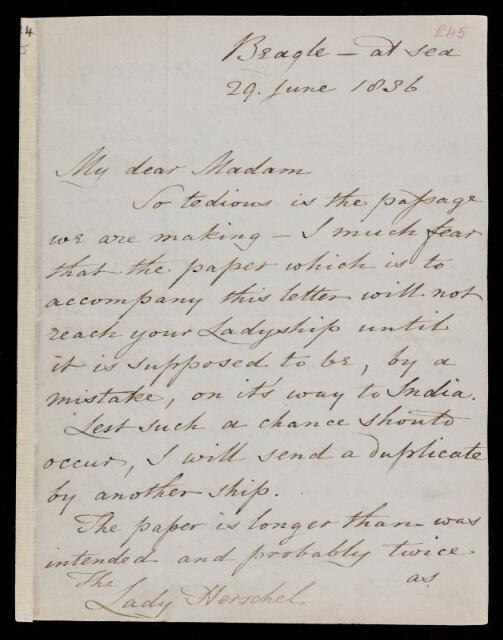 £45
Beagle – at sea
29. June 1836
My dear Madam
So tedious is the passage
we are making – I much fear
that the paper which is to
accompany this letter will not
reach your Ladyship until
it is supposed to be, by a
mistake, on it's way to India.
Lest such a chance should
occur, I will send a duplicate
by another ship.
The paper is longer than was
intended and probably twice
as
The
Lady Herschel